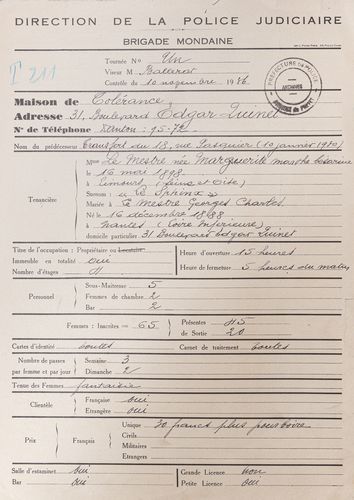 DIRECTION DE LA POLICE JUDICIAIRE
BRIGADE MONDAINE
I 211
Tournée N° Un
Viseur M
Contrôlé du 10 novembre 1936
PREFECTURE DE POLICE
ARCHIVES
Maison de Tolérance
Adresse 31, Boulevard Edgar Quinet
N° de Téléphone Danton : 95-72
Nom du prédécesseur Transfert du 18, rue Pasquier (10 janvier 1930)
Tenancière
Mme Le Mestre née Marguerite Marthe
le 16 mai 1898
à Limours (Seine et Oise)
Surnom : "le Sphinx"
Mariée à Le Mestre Georges Charles
Né le 16 décembre 1888
à Nantes (Loire Inférieure)
domicile particulier 31 Boulevard Edgar Quinet
Titre de l'occupation : Propriétaire ou Locataire
Immeuble en totalité oui
Nombre d'étages 4
Heure d'ouverture 15 heures
Heure de fermeture 5 heures du matin
Personnel
Sous-Maîtresse 5
Femmes de chambre 2
Bar 2
Femmes : Inscrites = 65
Présentes 45
de Sortie 20
Cartes d'identité toutes
Carnet de traitement toutes
Nombre de passes par femme et par jour
Semaine 3
Dimanche 2
Tenue des Femmes fantaisie
Clientèle
Française oui
Etrangère oui
Prix
Français
Unique 30 francs plus pourboire
Civils
Militaires
Etrangers
Salle d'estaminet oui
Bar oui
Grande Licence non
Petite Licence oui